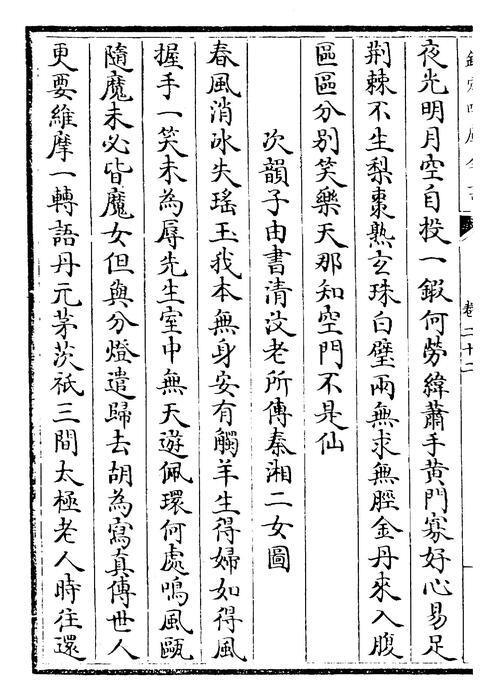 夜光明月空自投一鍜何勞緯蕭手黄門寡好心易足
荆棘不生梨棗熟玄珠白璧兩無求無脛金丹來入腹
區區分别笑樂天那知空門不是仙
次韻子由書清汶老所傳秦湘二女圖
春風消冰失瑤玉我本無身安有觸羊生得婦如得風
握手一笑未為辱先生室中無天遊佩環何處鳴風甌
隨魔未必皆魔女但與分燈遣歸去胡為寫真傳世人
更要維摩一轉語丹元茅茨衹三間太極老人時往還